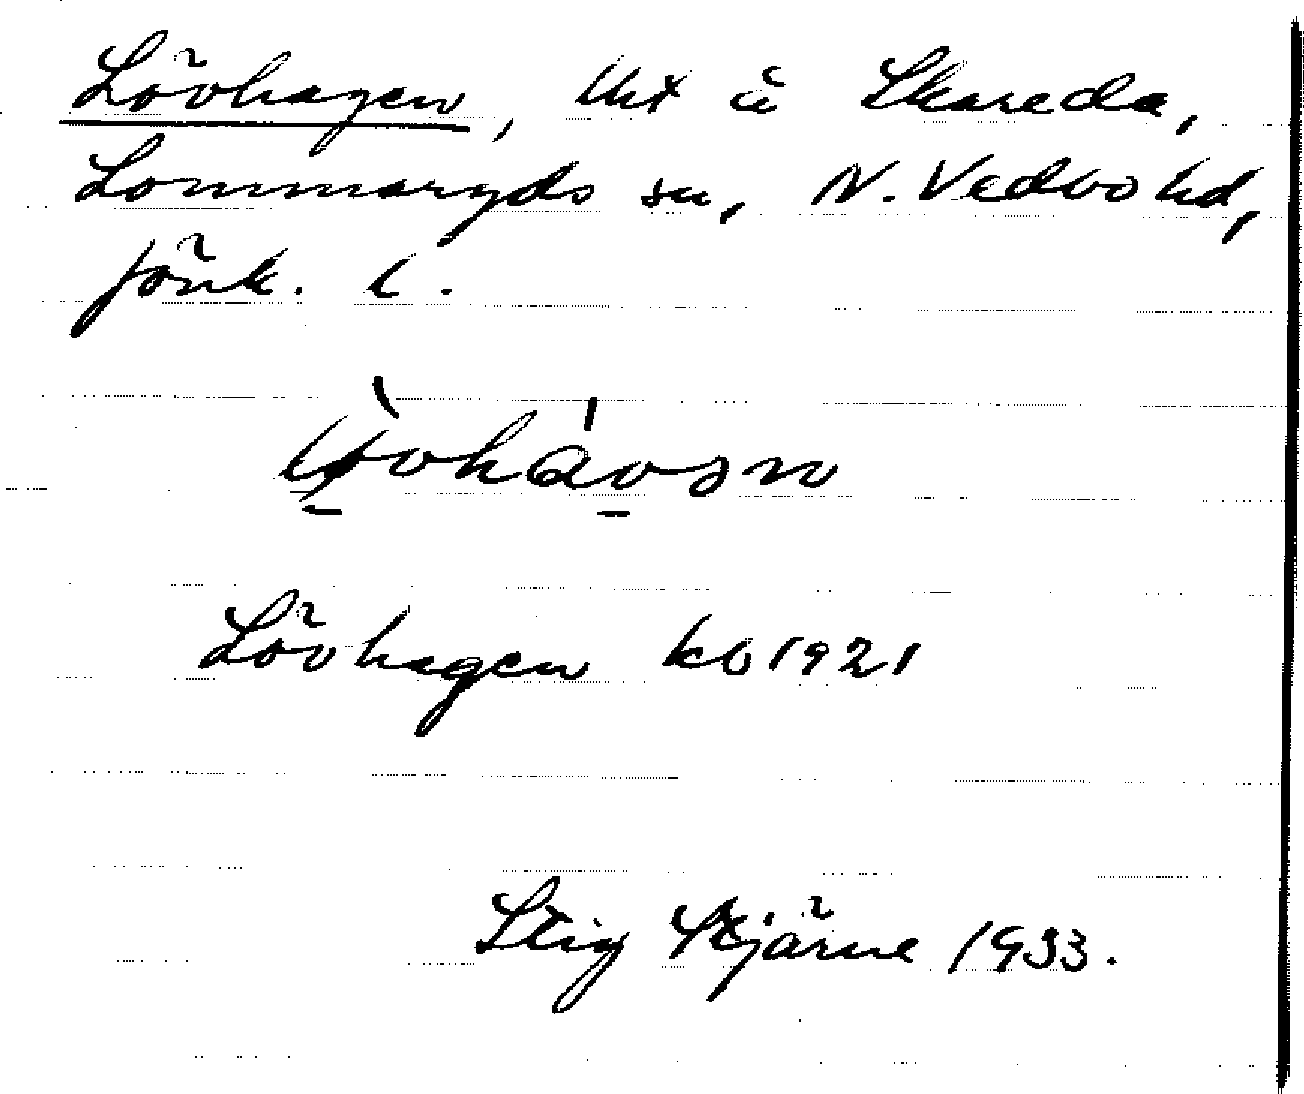 Lövhagen, tht å Skareda,
Lommaryds sn, N. Vedbo hd,
Jönk. l.
Lövhagen kb 1921
Stig Stjärne 1933.